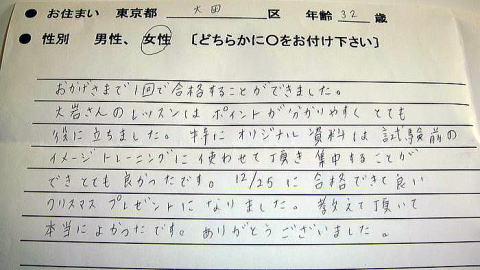 ● お住まい 東京都 大田 区 年齢 32 歳
● 性別 男性、女性 〔どちらかに〇をお付け下さい〕
おかげさまで1回で合格することができました。
大岩さんのレッスンは ポイントが分かりやすく とても
役に立ちました。特に オリジナル資料は 試験前の
イメージトレーニングに使わせて頂き 集中することが
できとても良かったです。12/25に 合格できて良い
クリスマス プレゼントに なりました。教えて頂いて
本当によかったです。ありがとうございました。